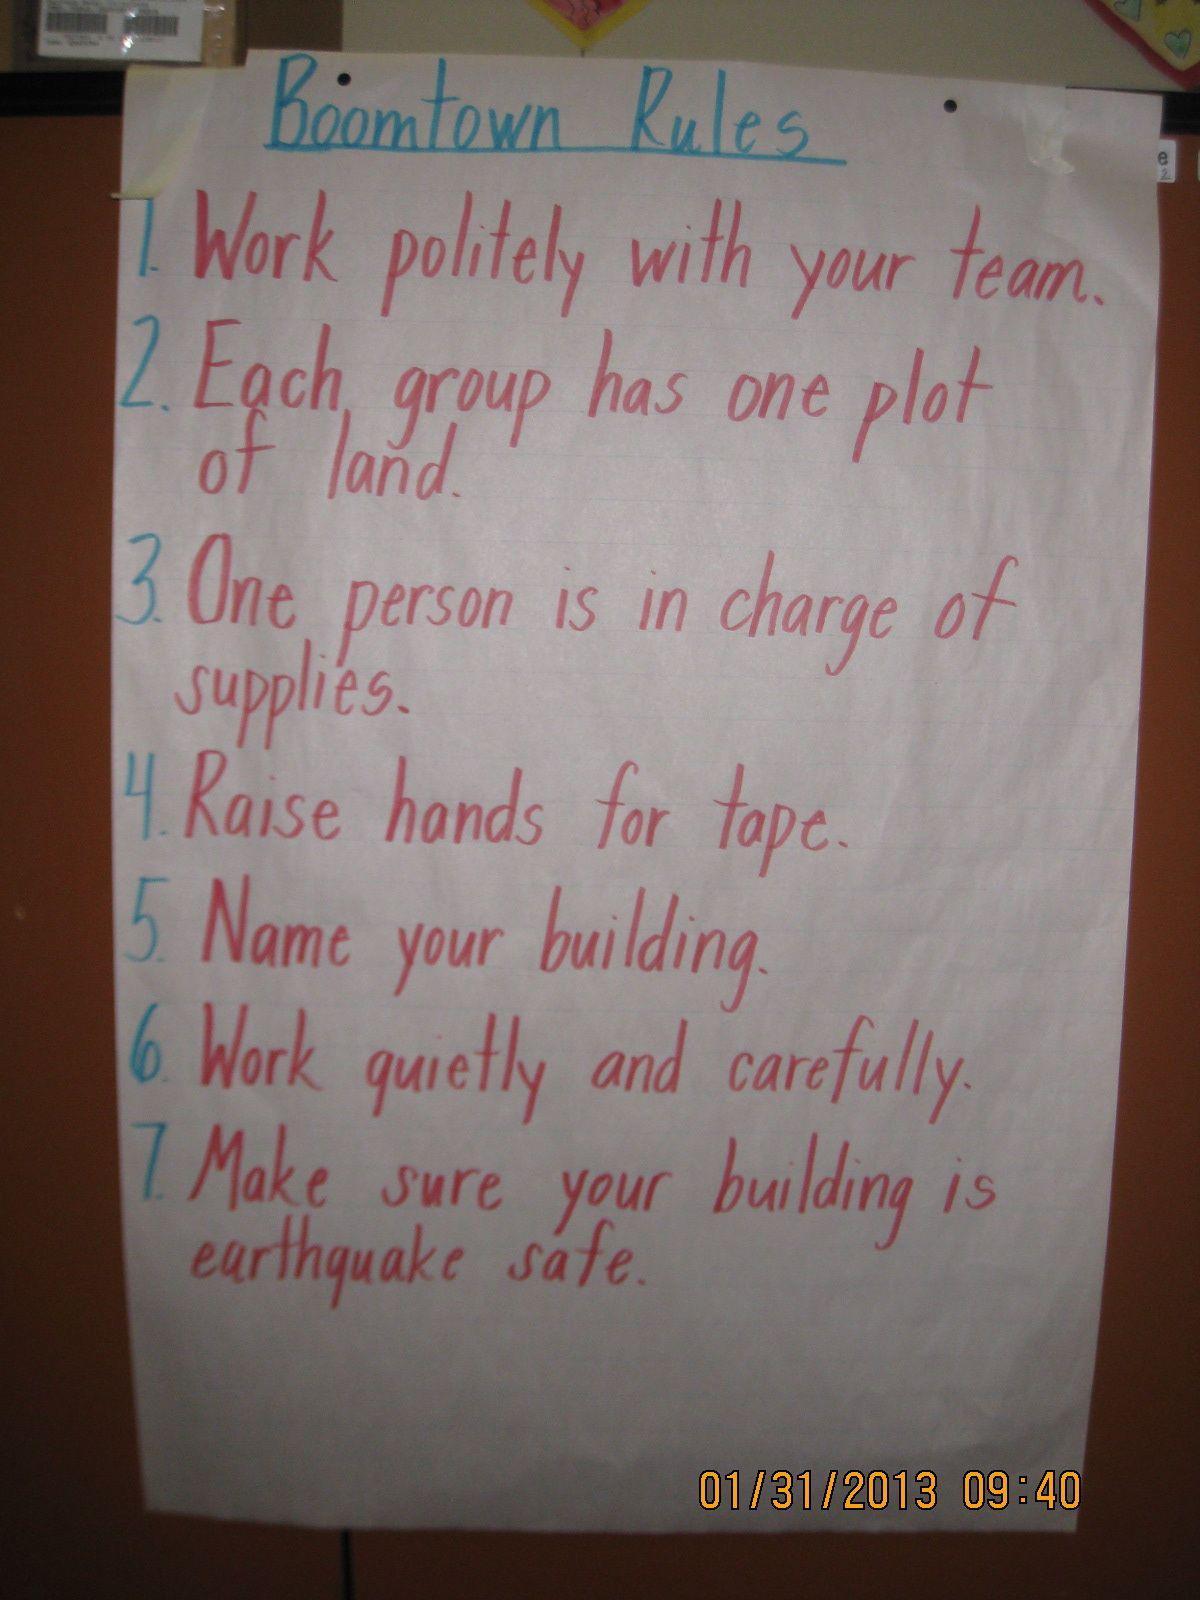 Boomtown Rules
1. Work politely with your team.
2. Each group has one plot
of land.
3. One person is in charge of
supplies.
4. Raise hands for tape.
5. Name your building.
6. Work quietly and carefully.
7. Make sure your building is
earthquake safe.
01/31/2013 09:40